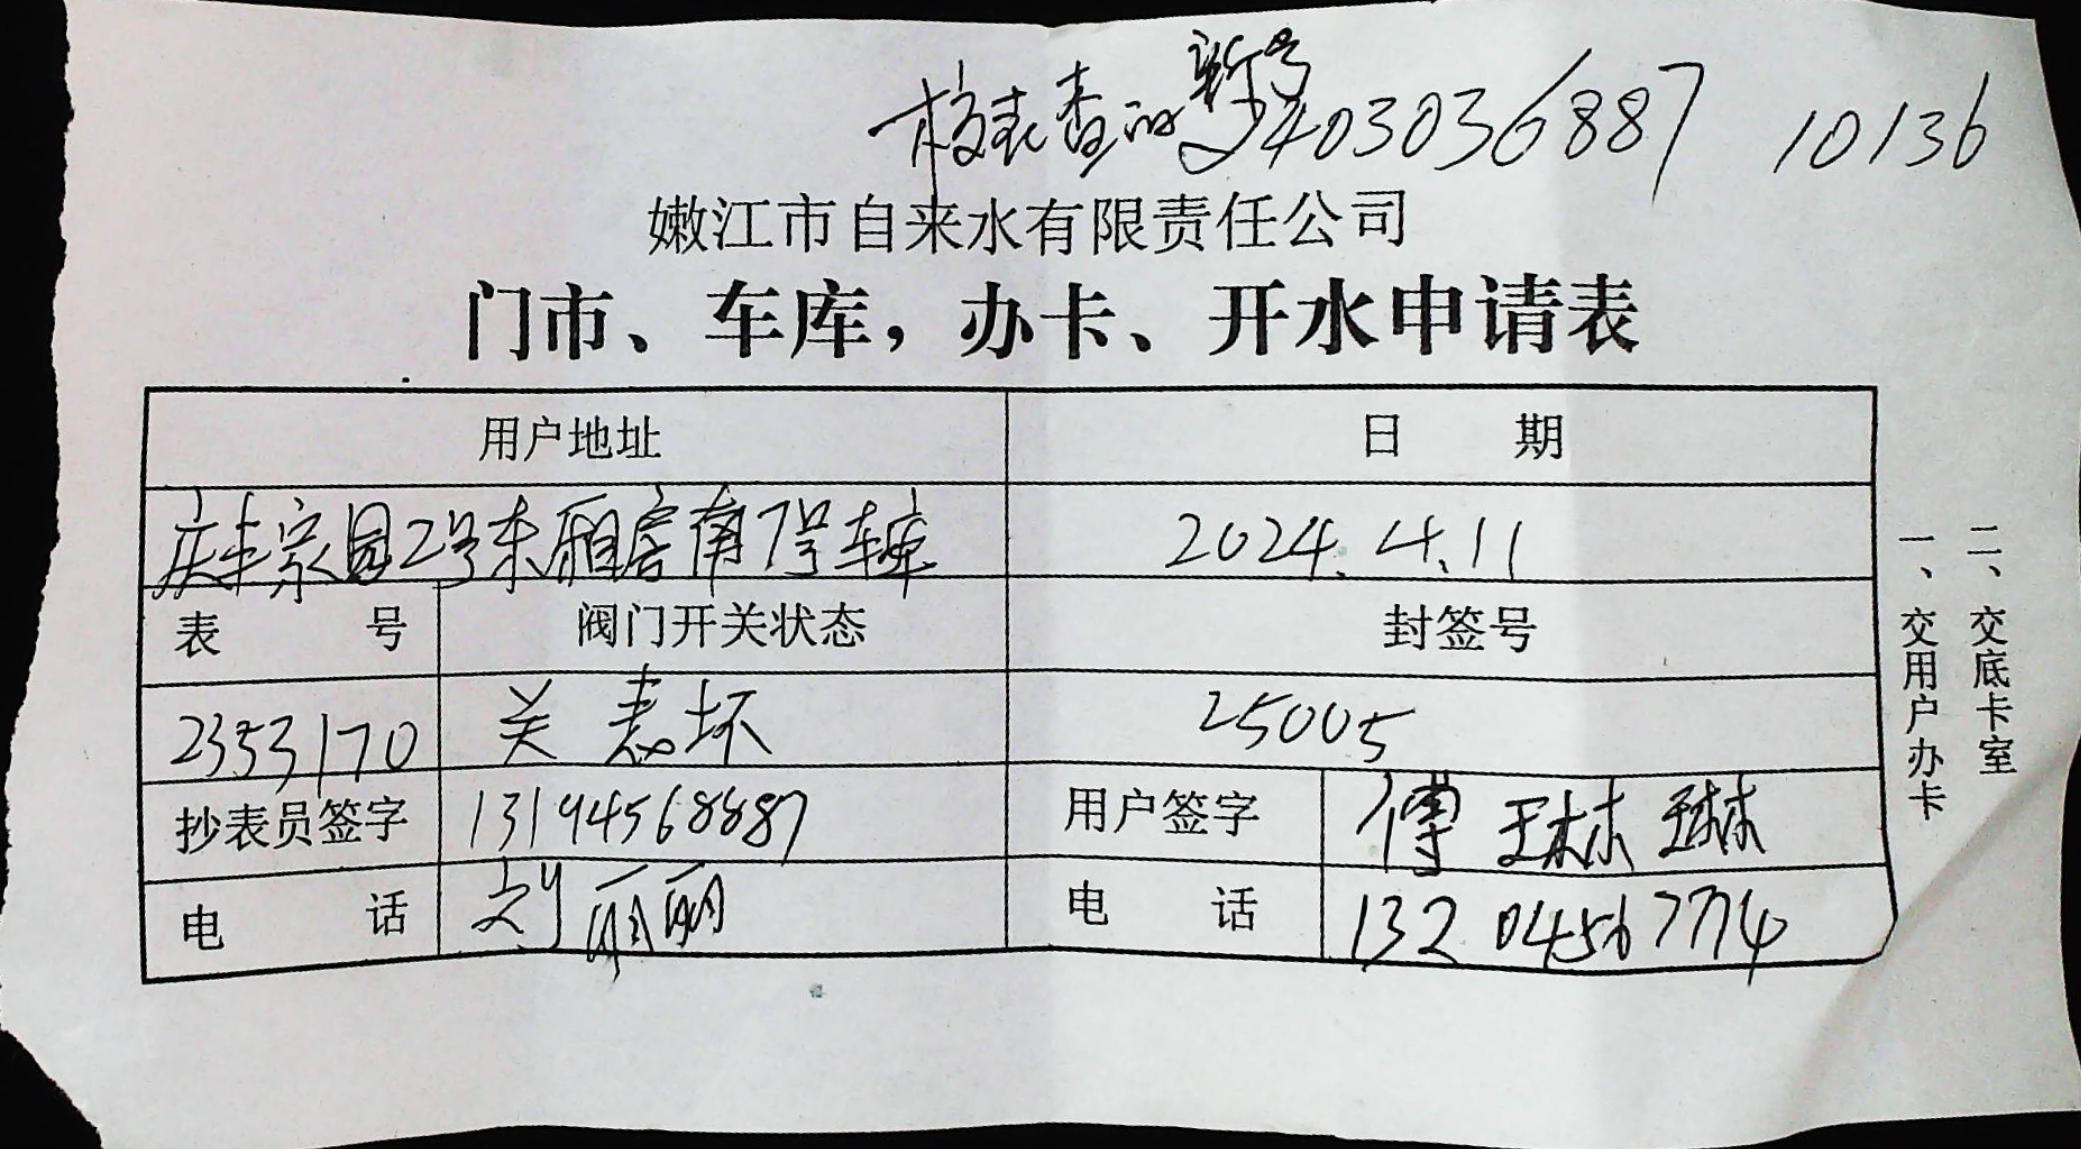 新号
校表查的 2403036887 10136
嫩江市自来水有限责任公司
门市、车库，办卡、开水申请表
用户地址 日 期
庆丰家园2号东厢房南7号车库 2024.4.11
表 号 阀门开关状态 封签号
2353170 关 表坏 25005
抄表员签字 13194568887 用户签字 傅琳琳
电 话 刘丽丽 电 话 13204567774
一、交用户办卡
二、交底卡室